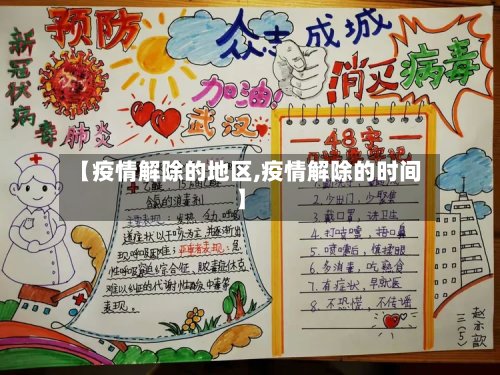 预防
众志成城
消灭病毒
新冠状病毒肺炎
加油!
武汉
48字
【疫情解除的地区,疫情解除的时间
】
乙醚、75%
含氯的消毒剂
主要表现:发热、乏力、干咳
道症状以干咳为主,并逐渐出
现呼吸困难;严重者表现:急
性呼吸窘迫综合征、脓毒症休克、
难以纠正的代谢性酸中毒等
表现。
2.少出门,少聚集
3.戴口罩,讲卫生
4.打喷嚏,捂口鼻
5.喷嚏后,慎揉眼
6.多消毒,吃熟食
7.有症状,早就医
8.不恐慌,不传谣
三(5)